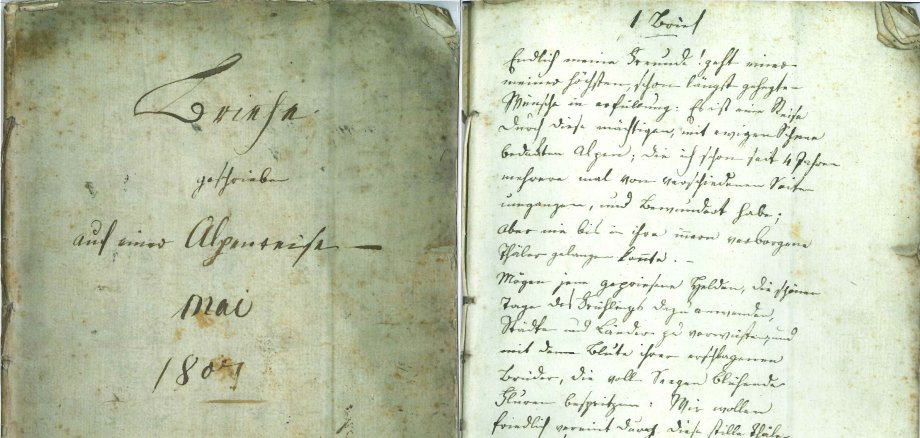 Briefe
geschrieben
auf einer Alpenreise —
Mai
1807
1 Brief
Endlich meine Freunde! geht einer
meiner höchsten, schon längst gehegten
Wünsche in erfüllung: Es ist eine Reise
durch diese mächtigen, mit ewigen Schnee
bedeckten Alpen; die ich schon seit 4 Jahren
mehrere mal von verschiedenen Seiten
umgangen, und bewundert habe;
aber nie bis in ihre innern verborgene
Thäler gelangen konnte. —
Mögen jene gepriesene Helden, die schönen
Tage des Frühlings dazu anwenden,
Städte und Länder zu verwüsten, und
mit dem Blute ihrer erschlagenen
Brüder, die voll Seegen blühende
Fluren bespritzen: Wir wollen
friedlich vereint durch diese stille Thäler